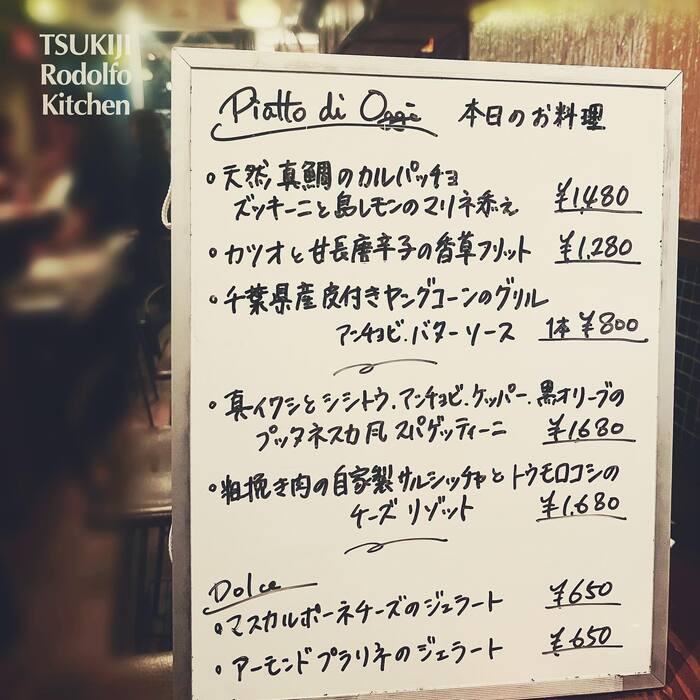 TSUKIJI
Rodolfo
Kitchen
Piatto di Oggi 本日のお料理
・天然真鯛のカルパッチョ
ズッキーニと島レモンのマリネ添え ¥1,480
・カツオと甘長唐辛子の香草フリット ¥1,280
・千葉県産皮付きヤングコーンのグリル
アンチョビ・バターソース 1本 ¥800
・真イワシとシシトウ、アンチョビ、ケッパー、黒オリーブの
プッタネスカ風スパゲッティーニ ¥1,680
・粗挽き肉の自家製サルシッチャとトウモロコシの
チーズリゾット ¥1,680
Dolce
・マスカルポーネチーズのジェラート ¥650
・アーモンドプラリネのジェラート ¥650